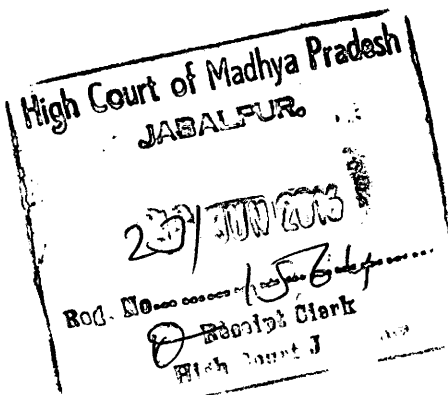 High Court of Madhya Pradesh
JABALPUR.
JUN
Rod. No...
Receipt Clerk
High Court J